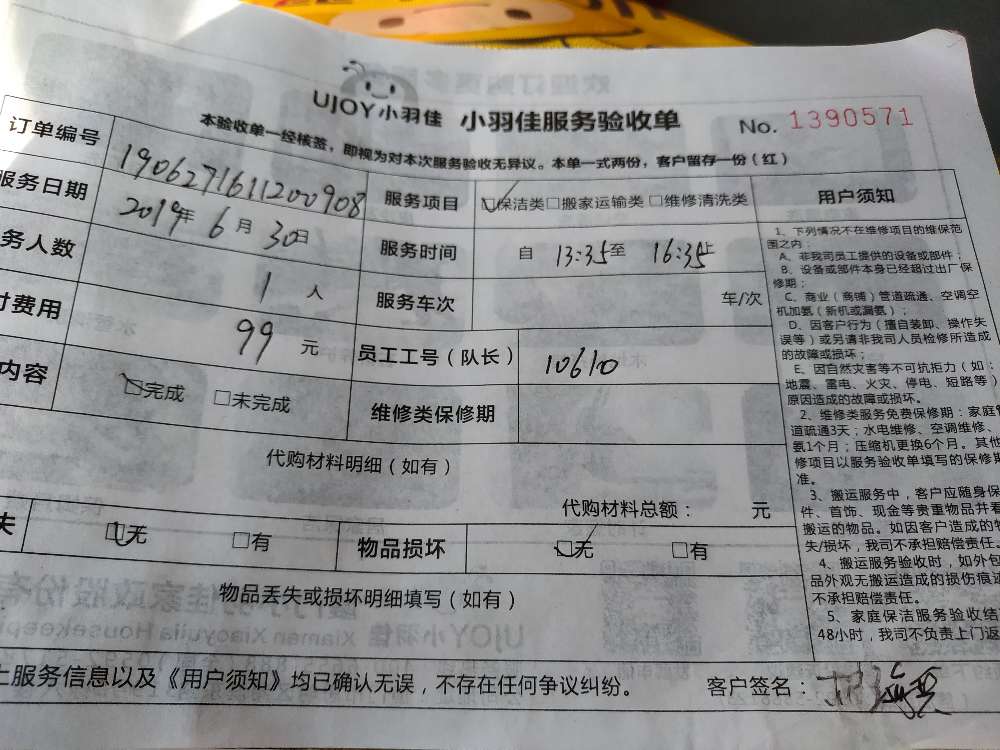 UJOY小羽佳 小羽佳服务验收单 No. 1390571
本验收单一经核签，即视为对本次服务验收无异议。本单一式两份，客户留存一份（红）
订单编号 190627161120​0908 服务项目 保洁类 □搬家运输类 □维修清洗类 用户须知
服务日期 2019年 6月 30日 服务时间 自 13:35至 16:35止
务人数 1 人 服务车次 车/次
付费用 99 元 员工工号（队长） 10610
内容 □完成 □未完成 维修类保修期
代购材料明细（如有）
代购材料总额： 元
失 □无 □有 物品损坏 □无 □有
物品丢失或损坏明细填写（如有）
上服务信息以及《用户须知》均已确认无误，不存在任何争议纠纷。 客户签名：
1、下列情况不在维修项目的维保范
围之内：
A、非我司员工提供的设备或部件；
B、设备或部件本身已经超过出厂保
修期；
C、商业（商铺）管道疏通、空调空
机加氨（新机或漏氨）；
D、因客户行为（擅自装卸、操作失
误等）或另请非我司人员检修所造成
的故障或损坏；
E、因自然灾害等不可抗拒力（如：
地震、雷电、火灾、停电、短路等）
原因造成的故障或损坏。
2、维修类服务免费保修期：家庭管
道疏通3天；水电维修、空调维修、
氨1个月；压缩机更换6个月。其他
修项目以服务验收单填写的保修期
准。
3、搬运服务中，客户应随身保
件、首饰、现金等贵重物品并看
搬运的物品。如因客户造成的物
失/损坏，我司不承担赔偿责任。
4、搬运服务验收时，如外包
品外观无搬运造成的损伤痕迹
不承担赔偿责任。
5、家庭保洁服务验收结
48小时，我司不负责上门返